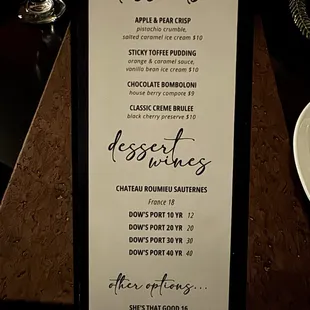 APPLE & PEAR CRISP
pistachio crumble,
salted caramel ice cream $10
STICKY TOFFEE PUDDING
orange & caramel sauce,
vanilla bean ice cream $10
CHOCOLATE BOMBOLONI
house berry compote $9
CLASSIC CREME BRULEE
black cherry preserve $10
dessert
wines
CHATEAU ROUMIEU SAUTERNES
France 18
DOW'S PORT 10 YR 12
DOW'S PORT 20 YR 20
DOW'S PORT 30 YR 30
DOW'S PORT 40 YR 40
other options...
SHE'S THAT GOOD 16